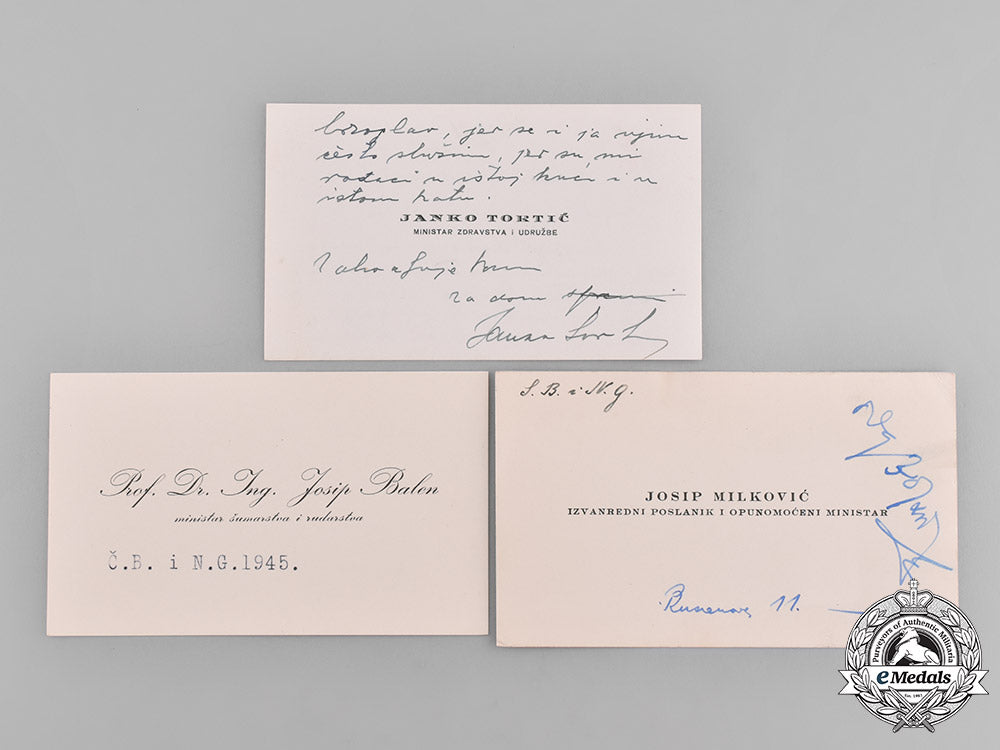 brzoplav, jer se i ja njim
često služim, jer su mi
rođaci u istoj kući i u
istom katu.
JANKO TORTIĆ
MINISTAR ZDRAVSTVA I UDRUŽBE
za dom
Prof. Dr. Ing. Josip Balen
ministar šumarstva i rudarstva
Č.B. i N.G.1945.
S. B. i N. G.
JOSIP MILKOVIĆ
IZVANREDNI POSLANIK I OPUNOMOĆENI MINISTAR
11.
Purveyors of Authentic Militaria
eMedals
Est. 1967